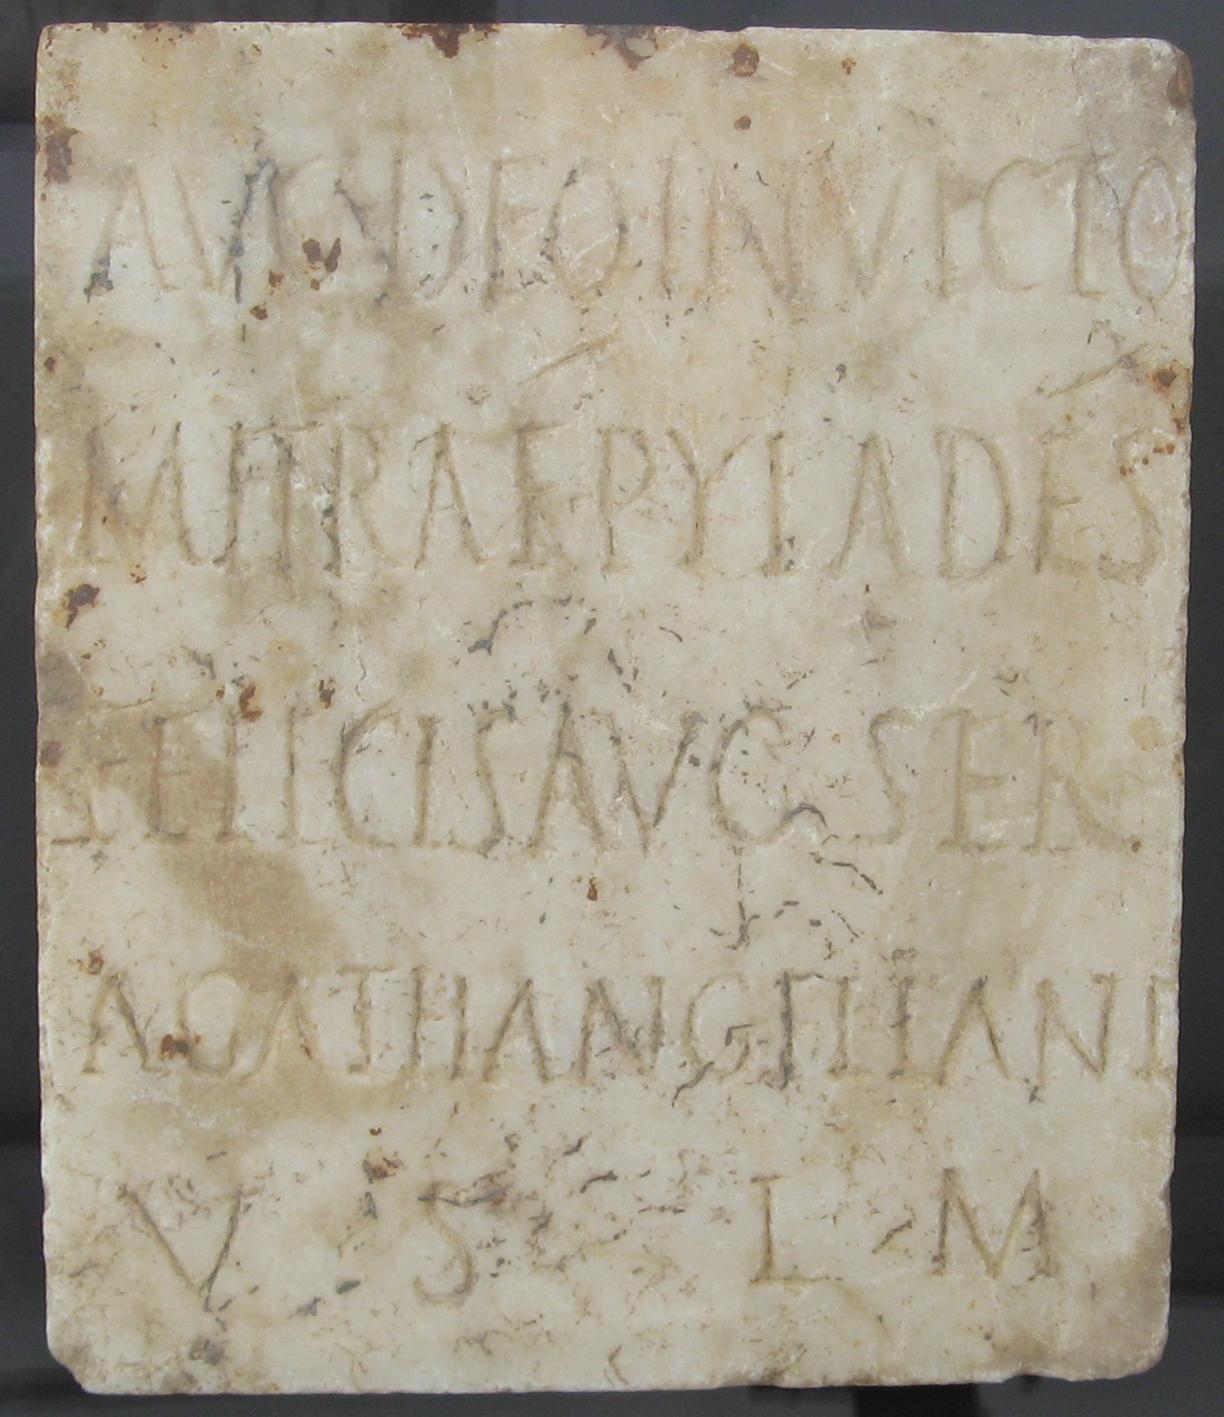 AVG S DEO INVICTO
MITRAE PYLADES
FELICIS AVG SER
AGATHANGELIANI
V S L M